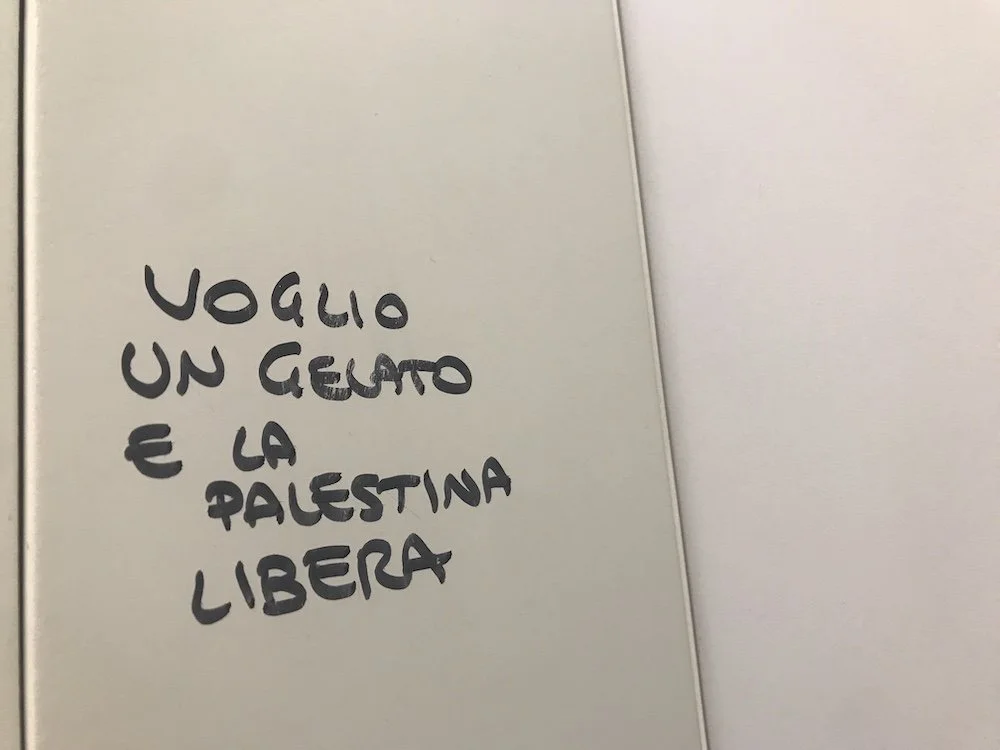 VOGLIO
UN GELATO
E LA
PALESTINA
LIBERA